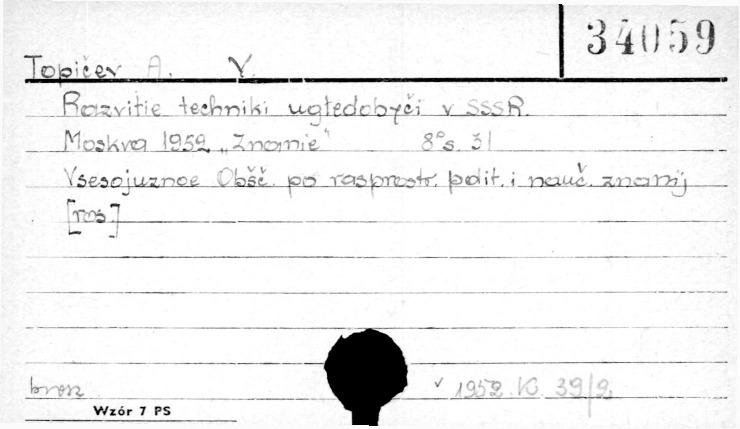 34059
Topičev A. V.
Razvitie techniki ugłedobyči v SSSR.
Moskva 1952 „Znanie" 8° s. 31
Vsesojuznoe Obšč. po rasprostr. polit. i nauč. znanij
[ros.]
brosz
v 1952 K. 39/2
Wzór 7 PS